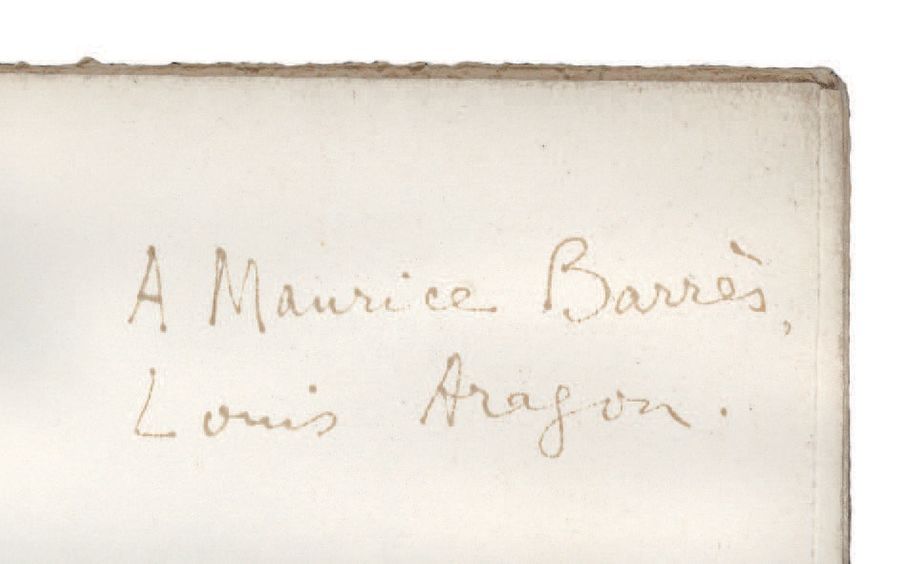 A Maurice Barrès,
Louis Aragon.